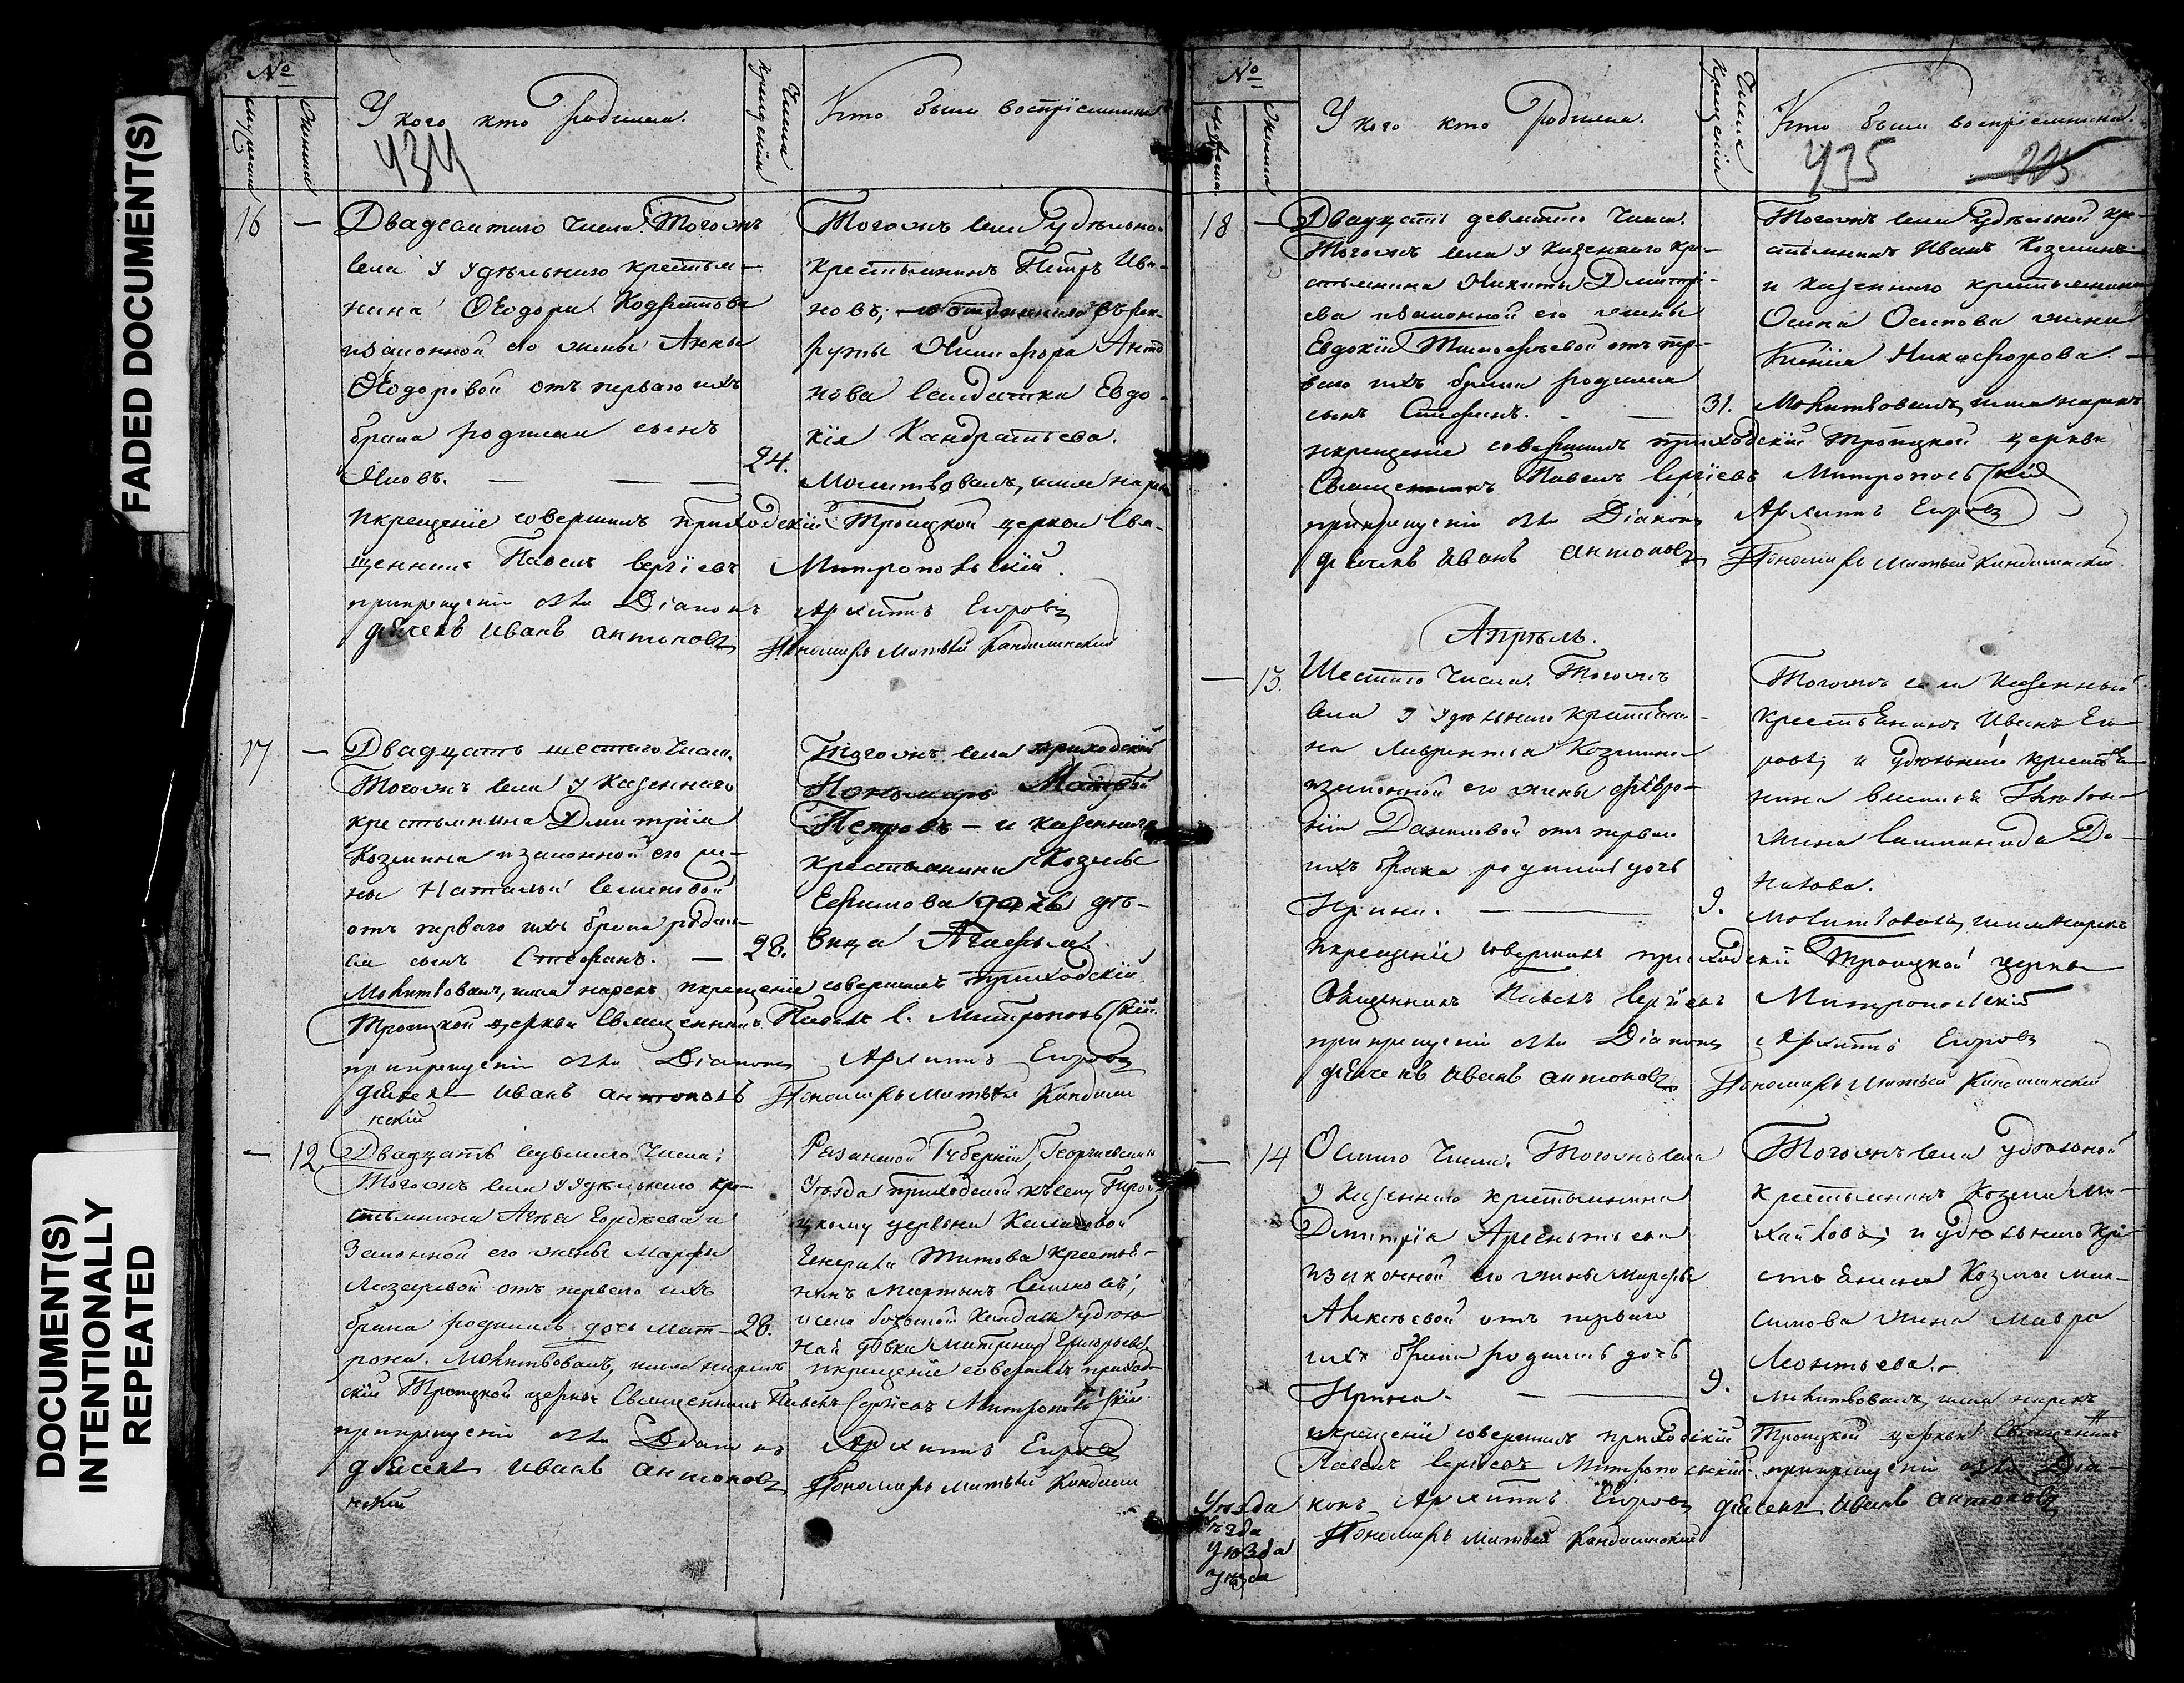 FADED DOCUMENT(S)
DOCUMENT(S)
INTENTIONALLY
REPEATED
№
У кого кто родился.
Числа крещенія
Кто были воспріемники
434
16 — Двадсатаго Числа. Тогожъ
села у удѣльнаго крестья-
нина Ѳеодора Кодратова
изаконной его жены Анны
Ѳеодоровой отъ перваго ихъ
брака родился сынъ
Яковъ. — — 24.
Тогожъ села удѣльной
крестьянинъ Петръ Ива-
новъ;
руты Никифора Анто
нова салдатка Евдо-
кія Кандратьева.
Молитвовалъ, имя нарекъ
икрещеніе совершилъ приходскій Троицкой церкви Свя-
щенникъ Павелъ Сергіевъ Митропольскій.
прикрещеніи былъ Діаконъ Архипъ Егоровъ
дьячекъ Иванъ Антоновъ Пономарь Матвей Кандаминский
17 — Двадцать шестаго Числа.
Тогожъ села у Казеннаго
крестьянина Дмитрія
Козмина изаконной его же-
ны Натальи Семеновой
отъ перваго ихъ брака родил-
ся сынъ Стефанъ. — 28.
Тогожъ села приходскій
Пономарь Матвей
Петровъ — и казеннаго
крестьянина Козмы
Ефимова дочь дѣ-
вица Агафья.
Молитвовалъ, имя нарекъ икрещеніе совершилъ приходскій
Троицкой церкви Священникъ Павелъ С. Митропольскій.
прикрещеніи былъ Діаконъ Архипъ Егоровъ
дьячекъ Иванъ Антоновъ Пономарь Матвей Кандами
нский
— 12 Двадцать седьмаго Числа:
Тогожъ села у удѣльнаго кре-
стьянина Агѣя Гордѣева и
Законной его жены Марфы
Лазаревой отъ перваго ихъ
брака родилась дочь Мат- 28.
рона. Молитвовалъ, имя нарекъ икрещеніе совершилъ приход-
Рязанской Губерніи,
Уѣзда приходской къ селу
цкому церкви
Генерала Титова крестья-
нинъ Мартынъ Семеновъ;
исела большой Кандали удѣль
ной дѣвка Матрена Григорьева
скій Троицкой церкви Священникъ Павелъ Сергіевъ Митропольскій
прикрещеніи былъ Діаконъ Архипъ Егоровъ
дьячекъ Иванъ Антоновъ Пономарь Матвей Кандами
нский
№
У кого кто родился.
Числа крещенія
Кто были воспріемники.
435 225
18 — Двадцать девятаго Числа.
Тогожъ села у Казеннаго кре-
стьянина Никиты Дмитрі-
ева изаконной его жены
Евдокіи Тимофѣевой отъ пер-
ваго ихъ брака родился
сынъ Стефанъ. — — 31.
Тогожъ села Удѣльной кре-
стьянинъ Иванъ Козминъ
и казеннаго крестьянина
Осипа Осипова жена
Ксенія Никифорова. —
Молитвовалъ, имя нарекъ
икрещеніе совершилъ приходскій Троицкой церкви
Священникъ Павелъ Сергіевъ Митропольскій
прикрещеніи былъ Діаконъ Архипъ Егоровъ
дьячекъ Иванъ Антоновъ Пономарь Матвей Кандаминский
Апрѣль.
— 13. Шестаго Числа. Тогожъ
села у удѣльнаго крестьяни-
на Лаврентья Козмина
изаконной его жены Февро-
ніи Даниловой отъ перваго
ихъ брака родилась дочь
Ирина. — 9.
Тогожъ села Казенный
крестьянинъ Иванъ Его-
ровъ и удѣльнаго крестья-
нина
жена Саламанида До-
натова.
Молитвовалъ, имя нарекъ
икрещеніе совершилъ приходскій Троицкой церкви
Священникъ Павелъ Сергіевъ Митропольскій
прикрещеніи былъ Діаконъ Архипъ Егоровъ
дьячекъ Иванъ Антоновъ Пономарь Матвей Кандаминский
— 14 Осмаго Числа. Тогожъ села
у Казеннаго крестьянина
Дмитрія Арсентьева
изаконной его жены Марфы
Алексѣевой отъ перваго
ихъ брака родилась дочь
Ирина. — 9.
Тогожъ села удѣльной
крестьянинъ Козма Ми-
хайловъ; и удѣльнаго кре-
стьянина Козмы Мак-
симова жена Мавра
Леонтьева. —
Молитвовалъ, имя нарекъ
икрещеніе совершилъ приходскій Троицкой церкви Священникъ
Павелъ Сергіевъ Митропольскій. прикрещеніи былъ Діа-
конъ Архипъ Егоровъ дьячекъ Иванъ Антоновъ
Пономарь Матвей Кандаминский
Уѣзда
ѣзда
Уѣзда
Уѣзда